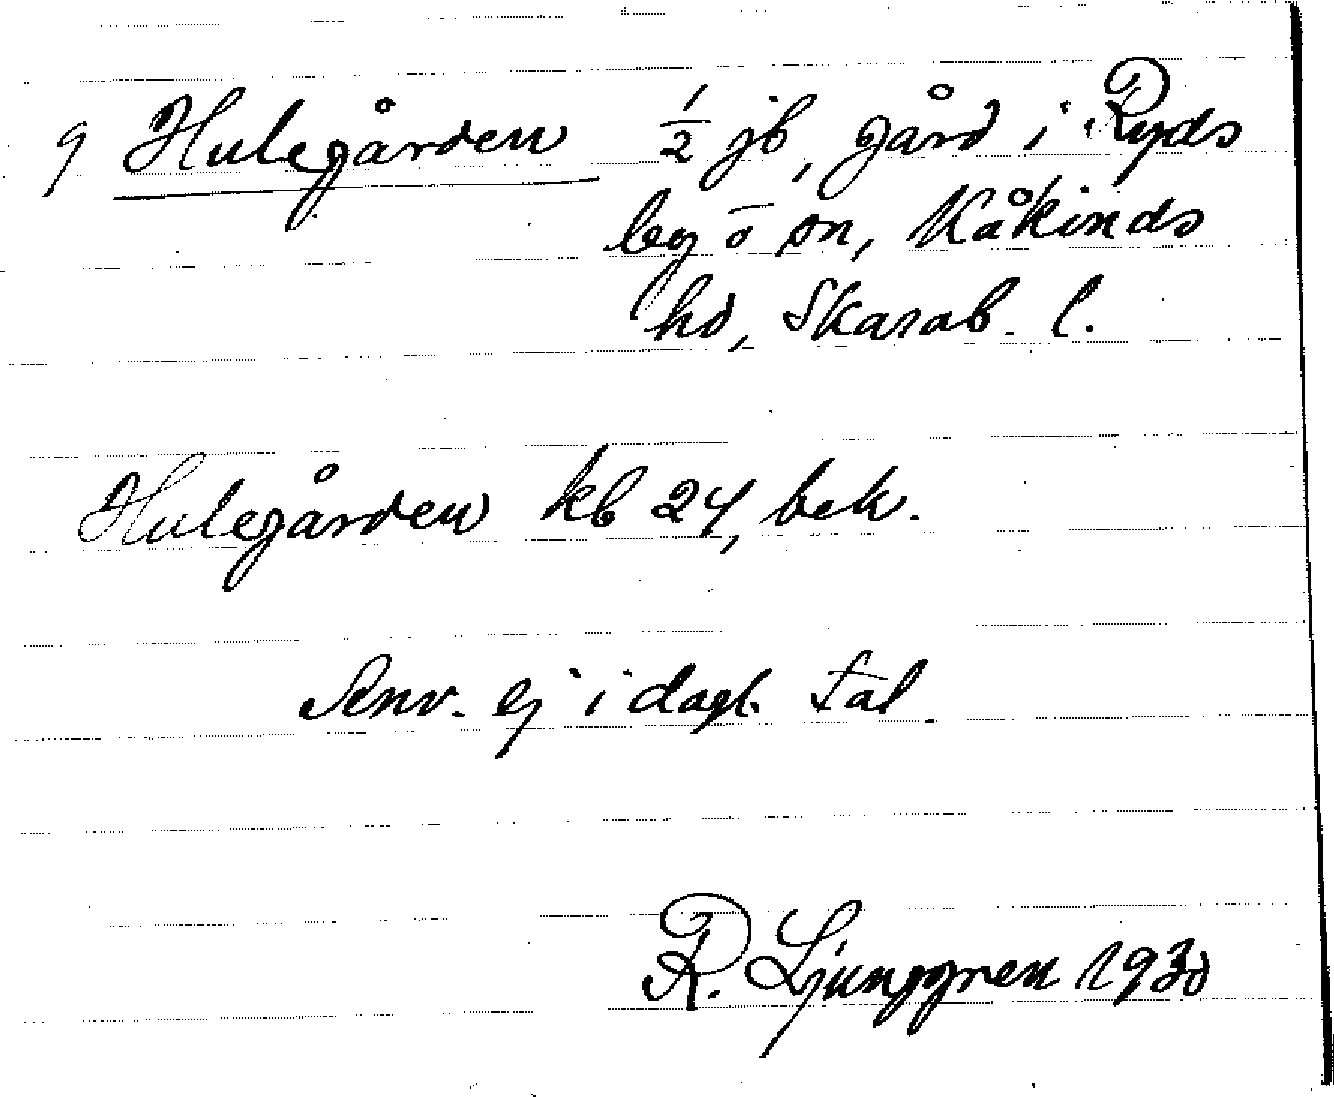 9 Hulegården 1/2 jb, gård i Ryds
by o sn, Kåkinds
hd, Skarab. l.
Hulegården kb 24, bek.
Anv. ej i dagl. tal.
R. Ljunggren 1930